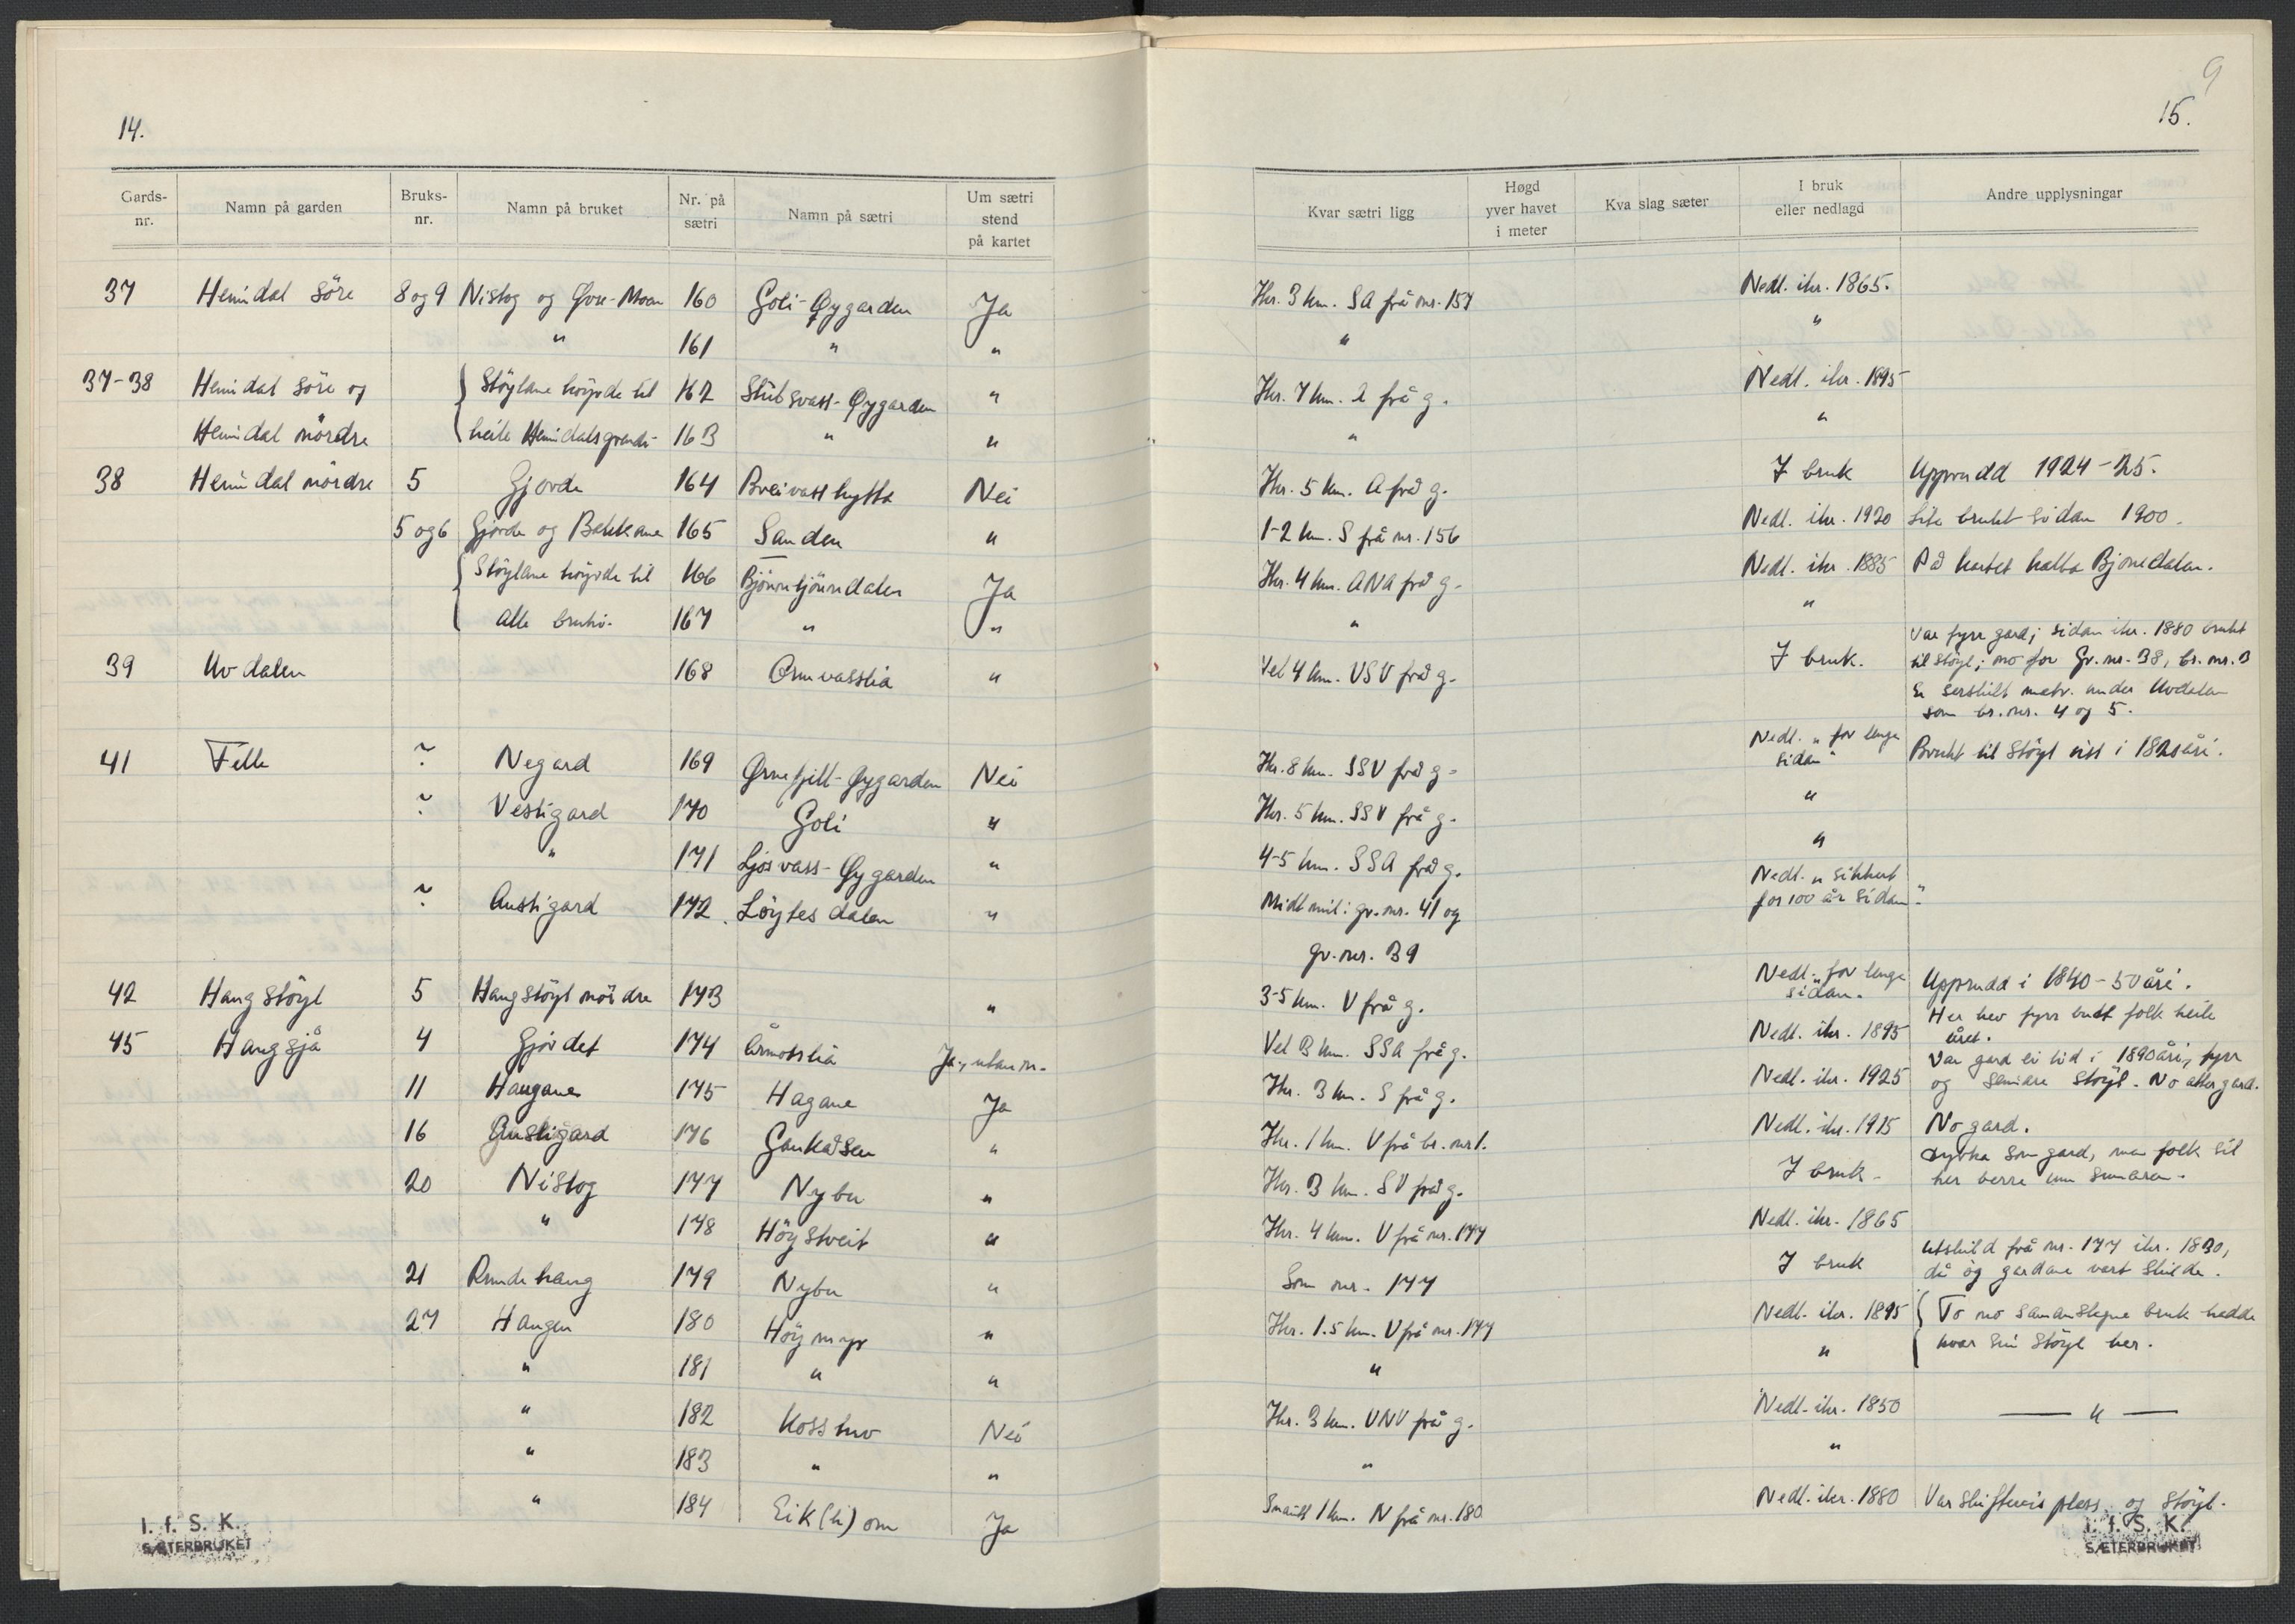 14.
Gards-nr. Namn på garden Bruks-nr. Namn på bruket Nr. på sætri Namn på sætri Um sætri stend på kartet
37 Heimdal söre 8 og 9 Nistog og Øvre-Moen 160 Goli-Øygarden Ja
" 161 " "
37-38 Heimdal söre og Stöylane höyrde til 162 Stubsvatt-Øygarden "
Heimdal nördre heile Heimdalsgrendi. 163 " "
38 Heimdal nördre 5 Gjorde 164 Breivasshytta Nei
5 og 6 Gjorde og Bakkane 165 Sanden "
Stöylane höyrde til 166 Björnntjönndalen Ja
alle bruki. 167 " "
39 Uvdalen 168 Ormvasslia "
41 Felle ? Negard 169 Ørnefjell-Øygarden Nei
? Vestigard 170 Goli "
" 171 Ljosvass-Øygarden "
? Austigard 172. Löytesdalen "
42 Haugstöyl 5 Haugstöyl nördre 173 "
45 Haugsjå 4 Gjordet 174 Åmotslia Ja, utan n.
11 Haugane 175 Hagane Ja
16 Austigard 176 Gaukåsen "
20 Nistog 177 Nybu "
" 178 Höystveit "
21 Rundehaug 179 Nybu "
27 Haugen 180 Höymyr "
" 181 " "
" 182 Kosshuv Nei
" 183 " "
" 184 Eik(h)om Ja
I. f. S. K.
SÆTERBRUKET
9
15.
Kvar sætri ligg Høgd yver havet i meter Kva slag sæter I bruk eller nedlagd Andre upplysningar
Ikr. 3 km. SA frå nr. 157 Nedl. ikr. 1865.
" "
Ikr. 7 km. A frå g. Nedl. ikr. 1895
" "
Ikr. 5 km. A frå g. I bruk Upprudd 1924-25.
1-2 km. S frå nr. 156 Nedl. ikr. 1920 Lite brukt sidan 1900.
Ikr. 4 km. ANA frå g. Nedl. ikr. 1885 På kartet kalla Bjonedalen.
" "
Vel 4 km. VSV frå g. I bruk. Var fyrr gard; sidan ikr. 1880 brukt
til stöyl; no for Gr. nr. 38, br. nr. 3
Er serskilt matr. under Uvdalen
som br. nr. 4 og 5.
Ikr. 8 km. SSV frå g. Nedl. "for lenge sidan" Brukt til stöyl sist i 1820åri.
Ikr. 5 km. SSV frå g. "
4-5 km. SSA frå g. "
Midt mill. gr. nr. 41 og Nedl. "sikkert for 100 år sidan".
gr. nr. 39
3-5 km. V frå g. Nedl. "for lenge sidan. Upprudd i 1840-50åri.
Vel 3 km. SSA frå g. Nedl. ikr. 1895 Her hev fyrr budt folk heile året.
Ikr. 3 km. S frå g. Nedl. ikr. 1925 Var gard ei tid i 1890åri, fyrr
og seinare stöyl. No atter gard.
Ikr. 1 km. V frå br. nr 1. Nedl. ikr. 1915 No gard.
Ikr. 3 km. SV frå g. I bruk Dyrka som gard, men folk sit
her berre um sumaren.
Ikr. 4 km. V frå nr. 177 Nedl. ikr. 1865
Som nr. 177 I bruk Utskild frå nr. 177 ikr. 1830,
då òg gardane vart skilde.
Ikr. 1.5 km. V frå nr. 177 Nedl. ikr. 1895 To no samanslegne bruk hadde
" " kvar sin stöyl her.
Ikr. 3 km. VNV frå g. Nedl. ikr. 1850 — " —
" "
Snaudt 1 km. N frå nr. 180 Nedl. ikr. 1880 Var skiftevis plass og stöyl.
I. f. S. K.
SÆTERBRUKET